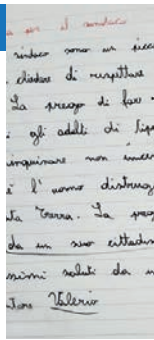 per il sindaco
sindaco sono un picc
chiedere di rispettare
La prego di fare
gli adulti di
inquinare non
l'uomo distrug
ta Terra. La preg
da un suo cittadin
ssimi saluti da u
tore Valerio